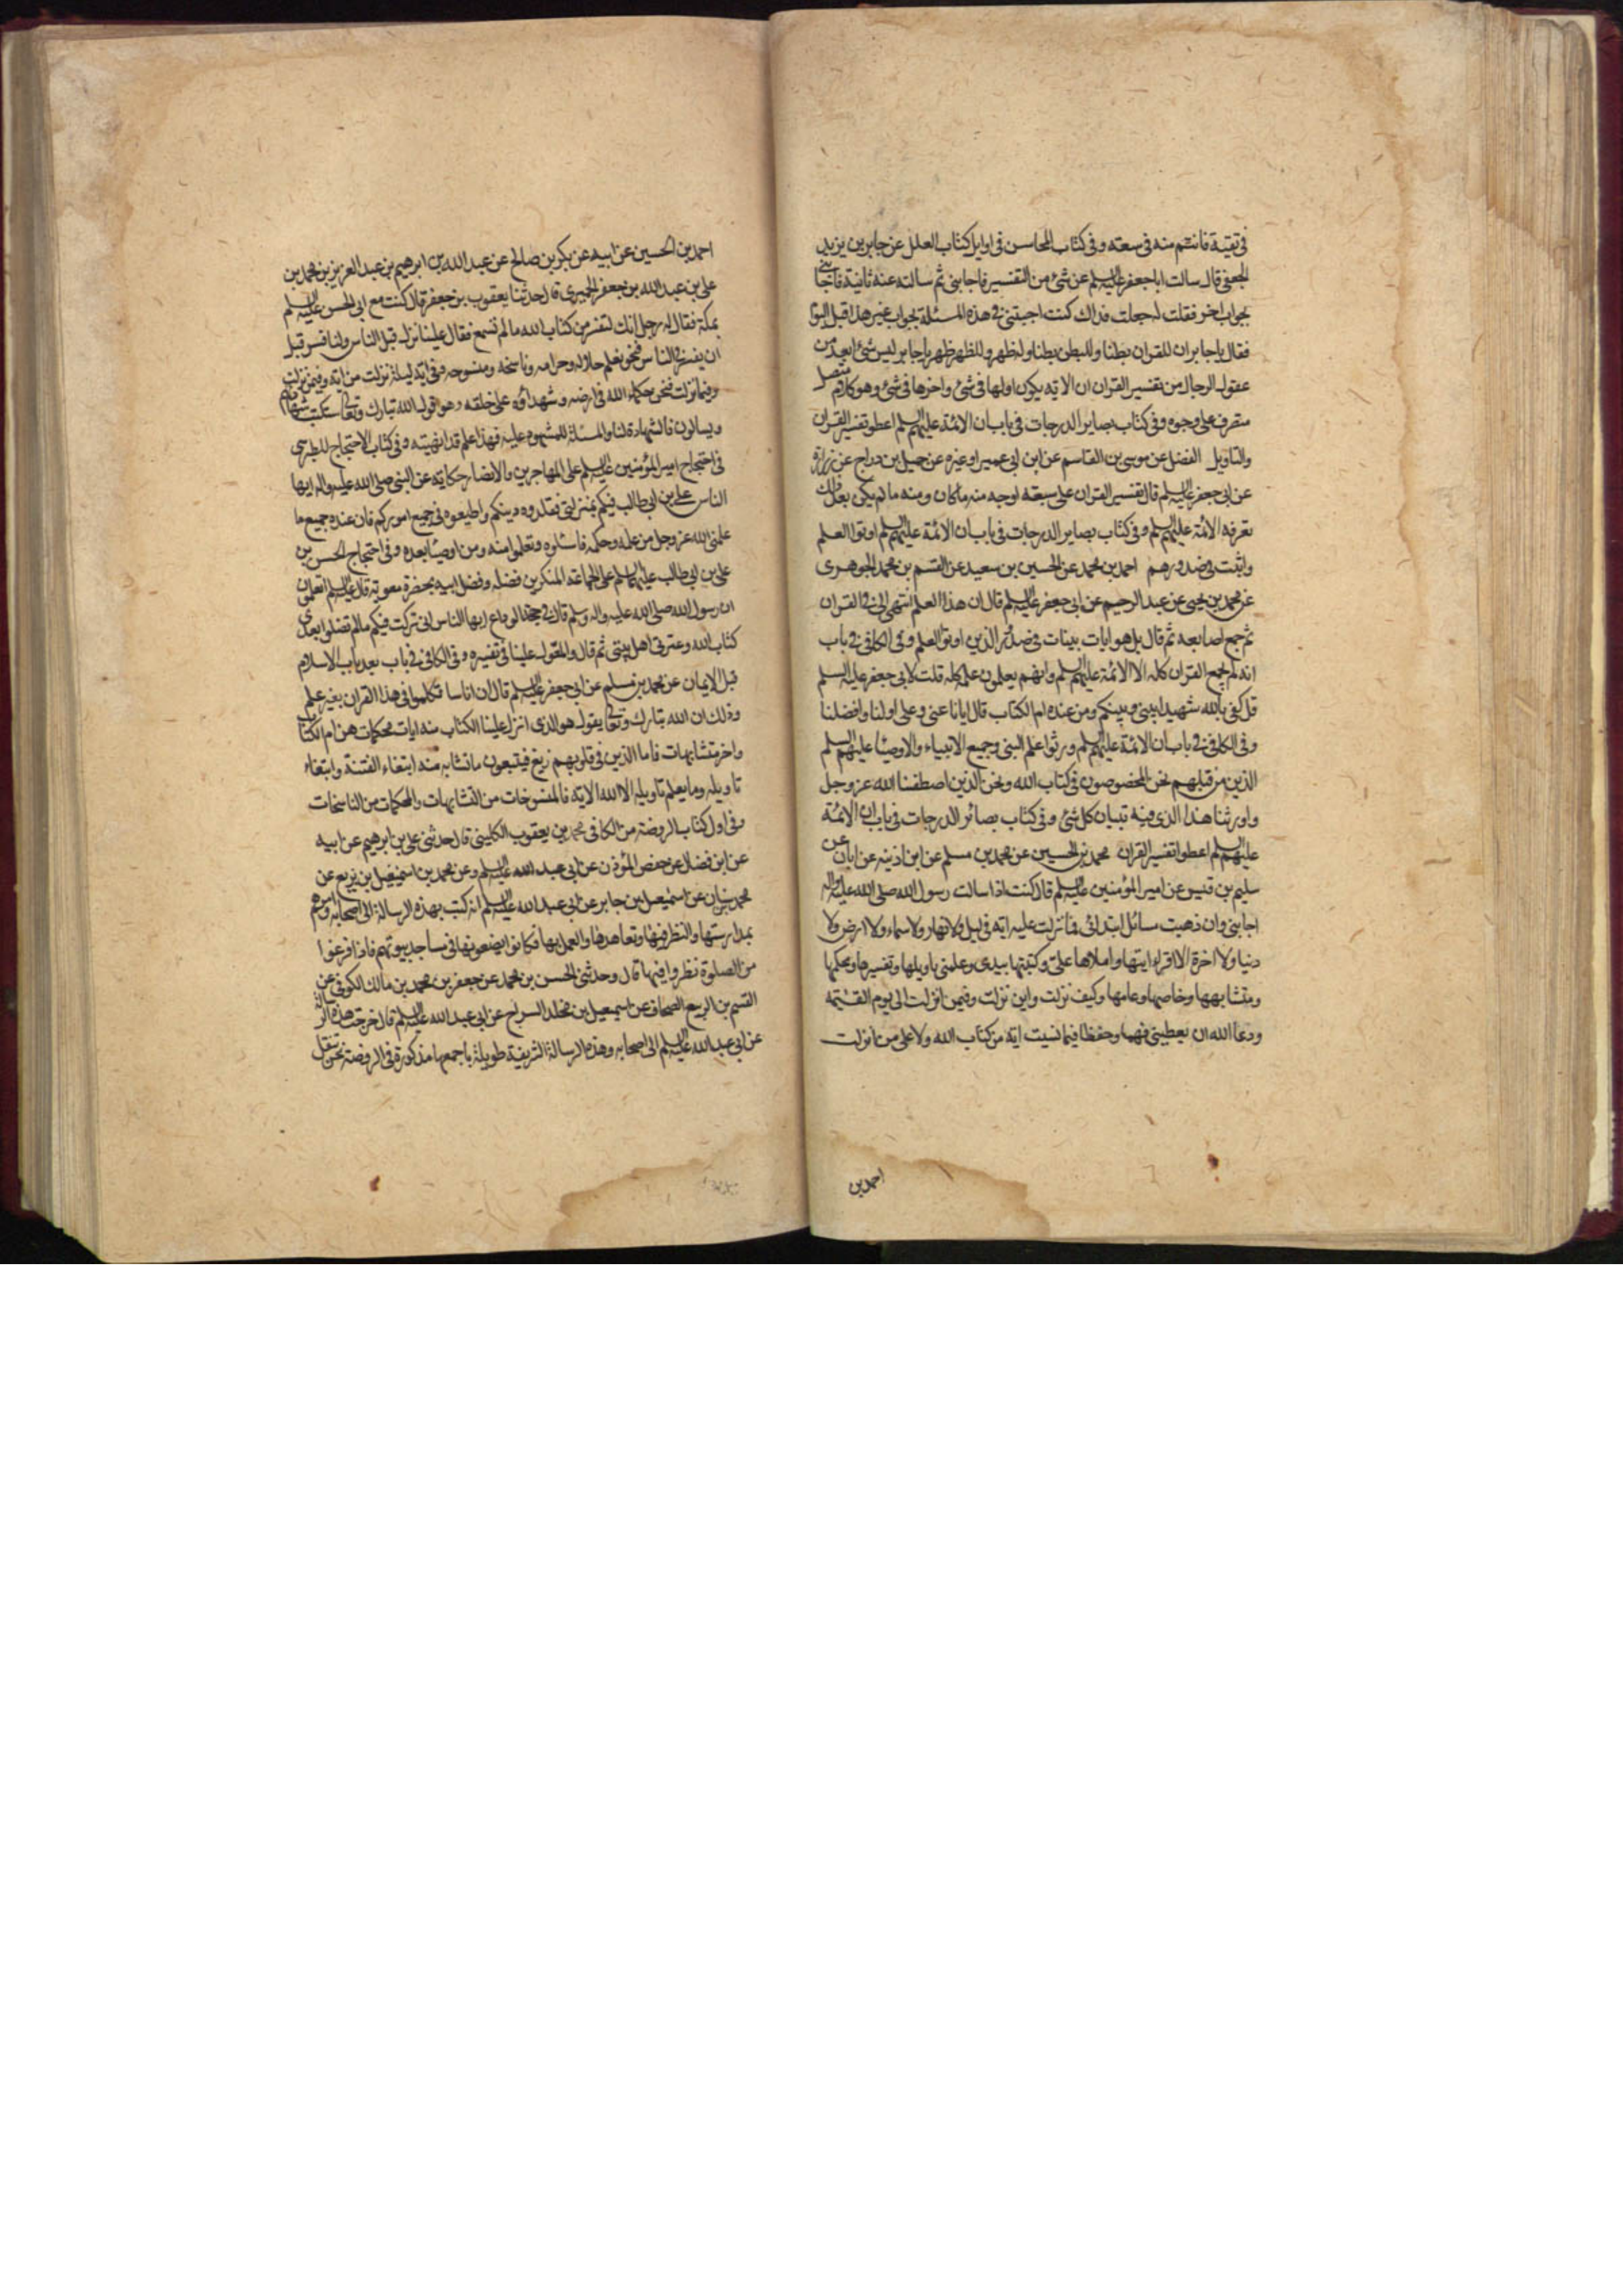 فى تقية فانتم منه فى سعته وفى كتاب المحاسن فى اوايل كتاب العلل عن جابر بن يزيد
الجعفى قال سالت ابا جعفر عليه السلم عن شئ من التفسير فاجابنى ثم سالته عنه ثانية فاجابنى
بجواب اخر فقلت له جعلت فداك كنت اجبتنى فى هذه المسئلة بجواب غير هذا قبل اليوم
فقال يا جابر ان للقران بطنا وللبطن بطنا وله ظهر وللظهر ظهر يا جابر ليس شئ ابعد من
عقول الرجال من تفسير القران ان الايه يكون اولها فى شئ واخرها فى شئ وهو كلام متصل
متصرف على وجوه وفى كتاب بصاير الدرجات فى باب ان الائمة عليهم السلم اعطو تفسير القران
والتاويل الفضل عن موسى بن القاسم عن ابن ابى عمير او غيره عن جميل بن دراج عن زرارة
عن ابى جعفر عليه السلم قال تفسير القران على سبعة اوجه منه ما كان ومنه ما لم يكن بعد ذلك
تعرفه الائمة عليهم السلم وفى كتاب بصاير الدرجات فى باب ان الائمة عليهم السلم اوتوا العلم
واثبت فى صدورهم احمد بن محمد عن الحسين بن سعيد عن القسم بن محمد الجوهرى
عن محمد بن يحيى عن عبد الرحيم عن ابى جعفر عليه السلم قال ان هذا العلم انتهى الى فى القران
ثم جمع اصابعه ثم قال بل هو ايات بينات فى صدور الذين اوتوا العلم وفى الكافى فى باب
انه لم يجمع القران كله الا الائمة عليهم السلم وانهم يعلمون علمه كله قلت لابى جعفر عليه السلم
قل كفى بالله شهيدا بينى وبينكم ومن عنده ام الكتاب قال ايانا عنى وعلى اولنا وافضلنا
وفى الكافى فى باب ان الائمة عليهم السلم ورثوا علم النبى وجميع الانبياء والاوصيا عليهم السلم
الذين من قبلهم نحن المخصوصون فى كتاب الله ونحن الذين اصطفنا الله عز وجل
واورثنا هذا الذى فيه تبيان كل شئ وفى كتاب بصائر الدرجات فى باب ان الائمة
عليهم السلم اعطوا تفسير القران محمد بن الحسين عن محمد بن مسلم عن ابن اذينه عن ابان عن
سليم بن قيس عن امير المؤمنين عليه السلم قال كنت اذا سالت رسول الله صلى الله عليه واله
اجابنى وان ذهبت مسائل ابتدائى فما نزلت عليه ايه فى ليل ولا نهار ولا سماء ولا ارض ولا
دنيا ولا اخرة الا اقرانيها واملاها على وكتبتها بيدى وعلمنى تاويلها وتفسيرها ومحكمها
ومتشابهها وخاصها وعامها وكيف نزلت واين نزلت وفيمن انزلت الى يوم القيمه
ودعا الله ان يعطينى فهما وحفظا فما نسيت اية من كتاب الله ولا على من انزلت
احمد بن
احمد بن الحسين عن ابيه عن بكر بن صالح عن عبد الله بن ابرهيم بن عبد العزيز بن محمد بن
على بن عبد الله بن جعفر الحميرى قال حدثنا يعقوب بن جعفر قال كنت مع ابى الحسن عليه السلم
بمكة فقال له رجل انك لتفسر من كتاب الله ما لم تسمع فقال علينا نزل قبل الناس ولنا فسر قبل
ان يفسر فى الناس فنحن نعلم حلاله وحرامه وناسخه ومنسوخه وفى اية ليلة نزلت من ايه وفيمن نزلت
وفيما نزلت فنحن حكماء الله فى ارضه وشهداؤه على خلقه وهو قول الله تبارك وتعالى ستكتب شهادتهم
ويسالون فالشهادة لنا والمسئلة للمشهود عليه فهذا علم قد انهيته وفى كتاب الاحتجاج للطبرسى
فى احتجاج امير المؤمنين عليه السلم على المهاجرين والانصار حكاية عن النبى صلى الله عليه واله ايها
الناس على بن ابى طالب فيكم بمنزلتى فقلدوه دينكم واطيعوه فى جميع اموركم فان عنده جميع ما
علمنى الله عز وجل من علمه وحكمه فاسئلوه وتعلموا منه ومن اوصيا بعده وفى احتجاج الحسن بن
على بن ابى طالب عليهما السلم على الجماعة المنكرين فضله وفضل ابيه بحضرة معوية قال عليه السلم اتعلمون
ان رسول الله صلى الله عليه واله وسلم قال فى حجة الوداع ايها الناس انى تركت فيكم ما لم تضلوا بعدى
كتاب الله وعترتى اهل بيتى ثم قال والمعول علينا فى تفسيره وفى الكافى فى باب بعد باب الاسلام
قبل الايمان عن محمد بن مسلم عن ابى جعفر عليه السلم قال ان اناسا تكلموا فى هذا القران بغير علم
وذلك ان الله تبارك وتعالى يقول هو الذى انزل علينا الكتاب منه ايات محكمات هن ام الكتاب
واخر متشابهات فاما الذين فى قلوبهم زيغ فيتبعون ما تشابه منه ابتغاء الفتنة وابتغاء
تاويله وما يعلم تاويله الا الله الايه فالمنسوخات من المتشابهات والمحكمات من الناسخات
وفى اول كتاب الروضة من الكافى محمد بن يعقوب الكلينى قال حدثنى على بن ابرهيم عن ابيه
عن ابن فضال عن حفص المؤذن عن ابى عبد الله عليه السلم وعن محمد بن اسمعيل بن بزيع عن
محمد بن سنان عن اسمعيل بن جابر عن ابى عبد الله عليه السلم انه كتب بهذه الرسالة الى اصحابه وامرهم
بمدارستها والنظر فيها وتعاهدها والعمل بها فكانوا يضعونها فى مساجد بيوتهم فاذا فرغوا
من الصلوة نظروا فيها قال وحدثنى الحسن بن محمد عن جعفر بن محمد بن مالك الكوفى عن
القسم بن الربيع الصحاف عن اسمعيل بن مخلد السراج عن ابى عبد الله عليه السلم قال خرجت هذه الرسالة
عن ابى عبد الله عليه السلم الى اصحابه وهذه الرسالة الشريفة طويلة باجمعها مذكورة فى الروضة نحن ننقل